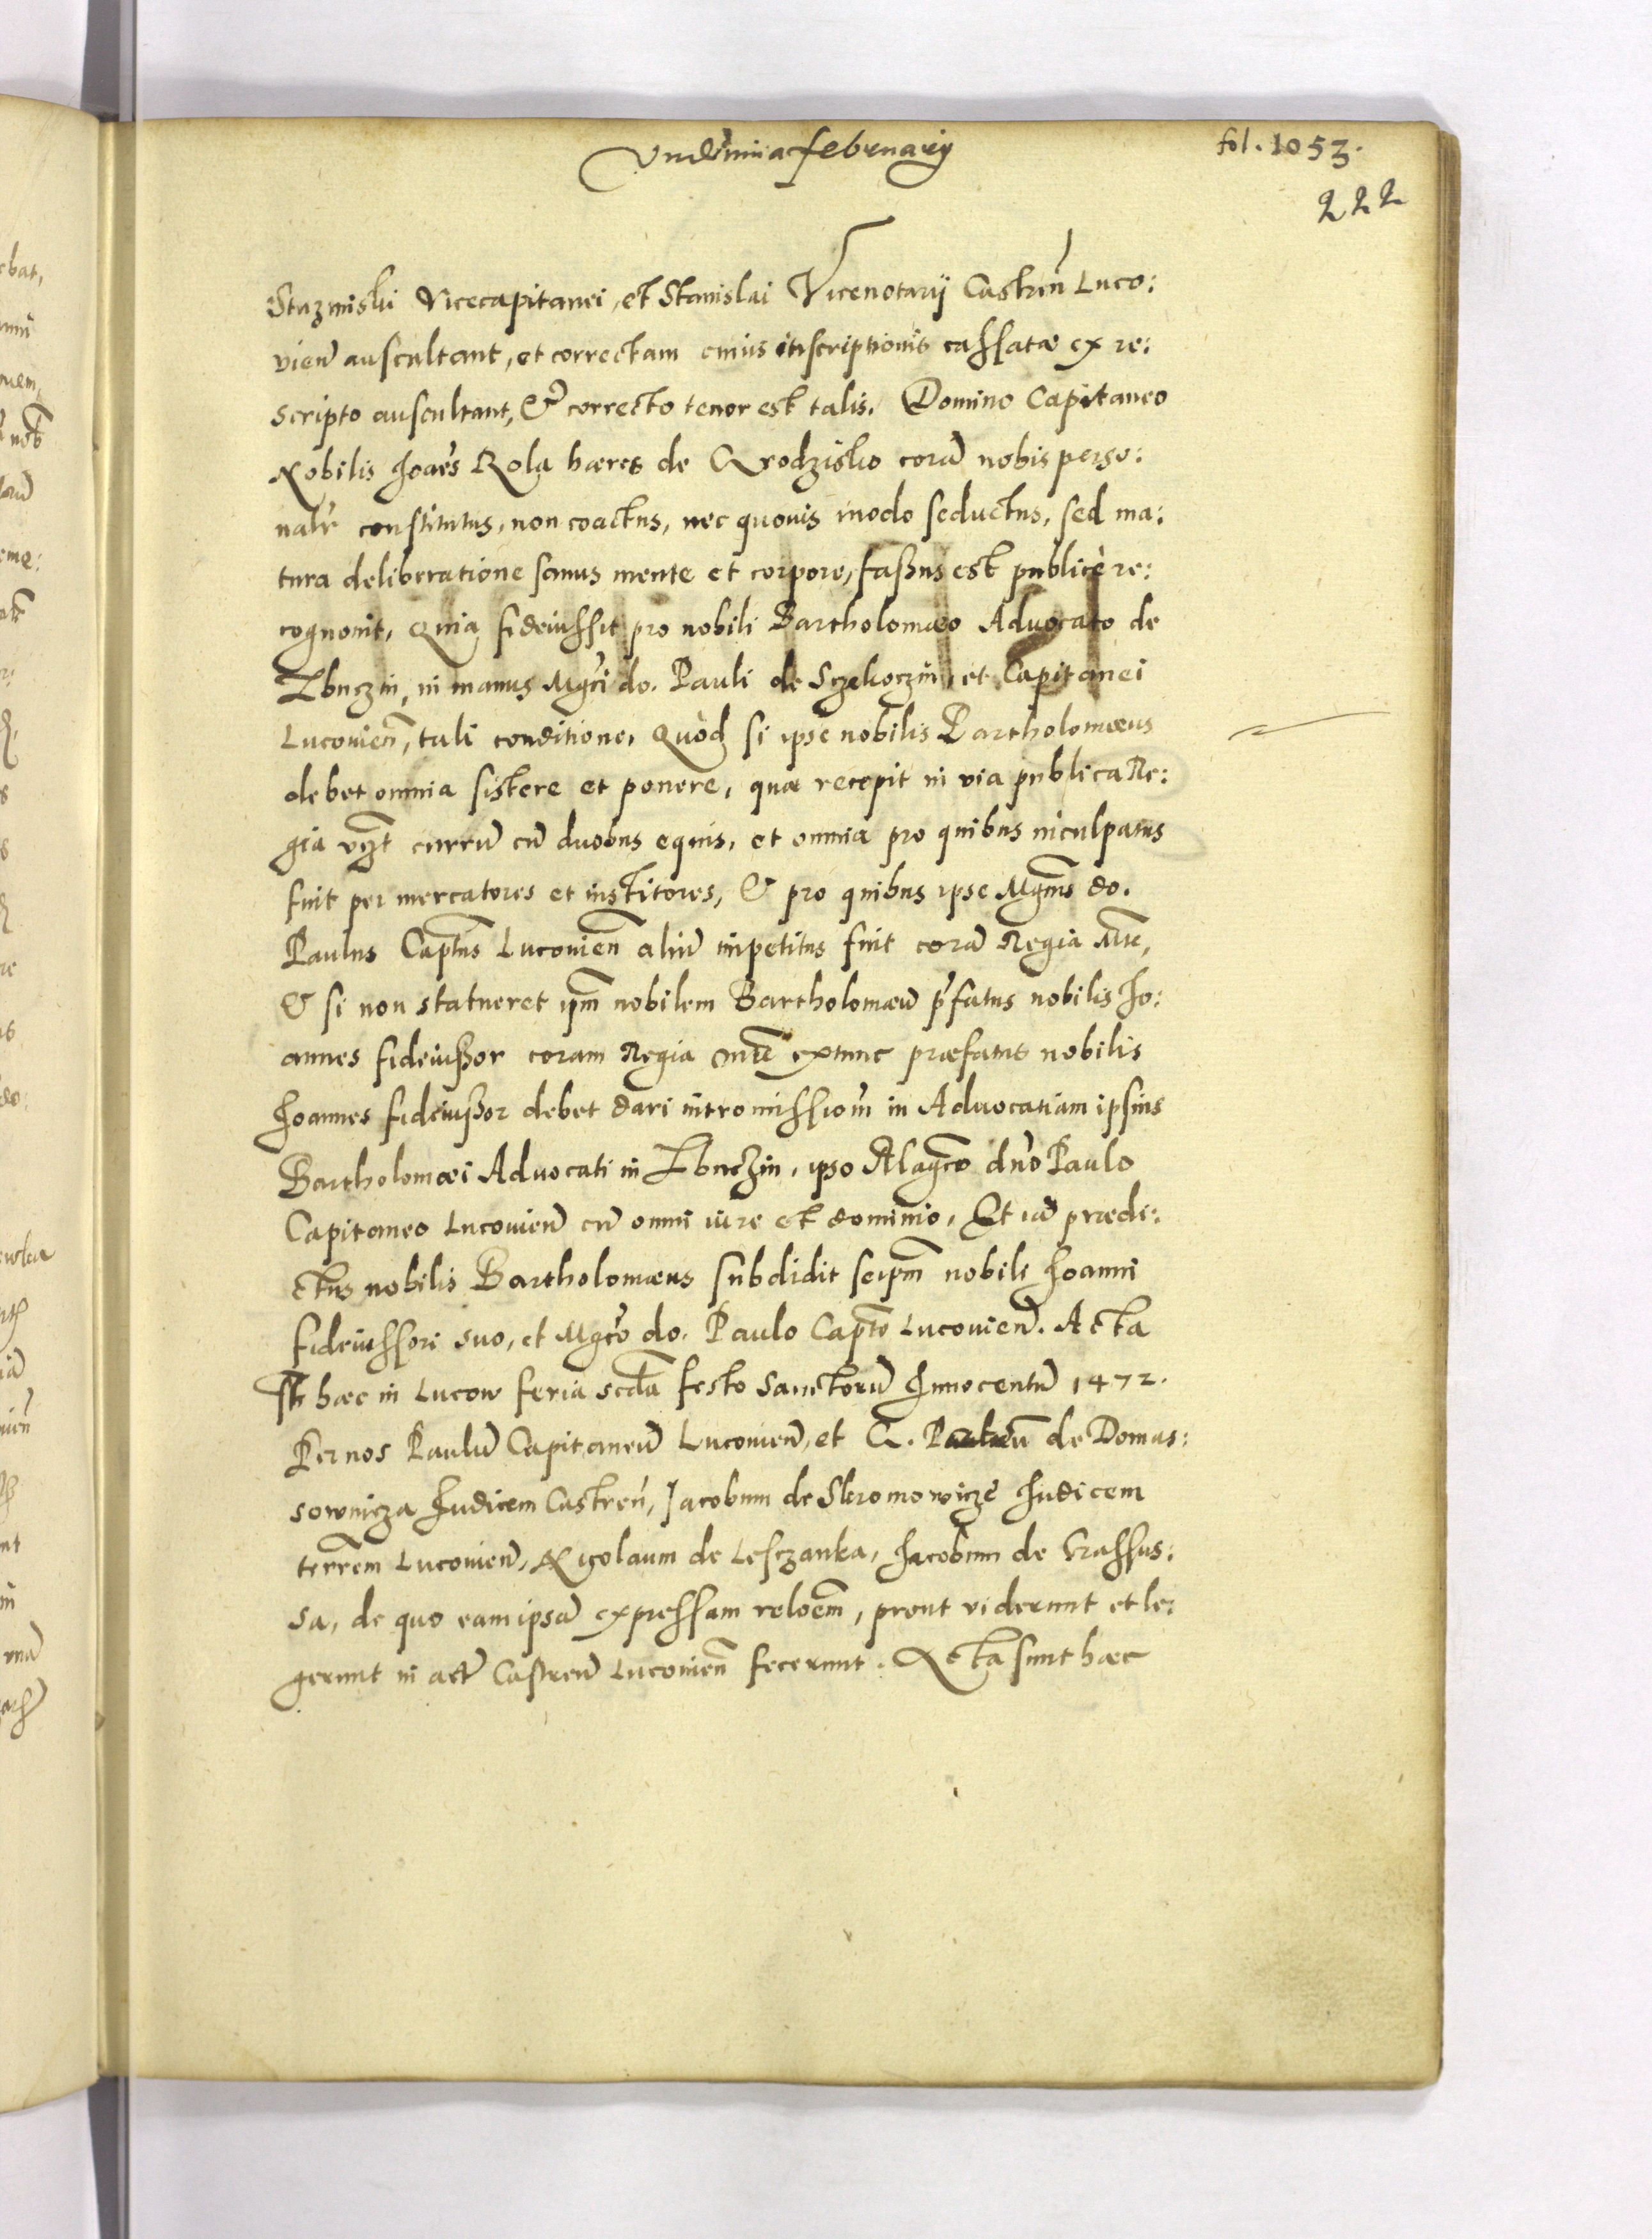 Vndecima february
fol. 1053.
222
Stuzmiski Vicecapitanei, et Stanislai Vicenotarij Castreñ Luco:
vieñ auscultant, et correctam cuius inscriptionis cassatæ ex re:
scripto auscultant, & correcto tenor est talis. Domino Capitaneo
Nobilis Joañes Rola hæres de Grodzisko corã nobis perso:
nalr̃ constitutus, non coactus, nec quouis modo seductus, sed ma:
tura deliberatione sanus mente et corpore, faßus est publicè re:
cognouit, Quia fideiussit pro nobili Bartholomæo Aduocato de
Zbuczin, in manus Mgci do. Pauli de Sczekoczin, et Capitanei
Lucouieñ, tali conditione, Quòd si ipse nobilis Bartholomæus
debet omnia sistere et ponere, quæ recepit in via publica Re:
gia vizt currũ cũ duobus equis, et omnia pro quibus inculpatus
fuit per mercatores et institores, & pro quibus ipse Mgnus do.
Paulus Captũs Lucouieñ aliũ inpetitus fuit corã Regia Mte,
& si non statueret ipm̃ nobilem Bartholomæũ p̃fatus nobilis Jo:
annes fideiußor coram Regia Mte extunc præfatus nobilis
Joannes fideiußor debet dari intromissioñ in Aduocatiam ipsius
Bartholomæi Aduocati in Zbuczin, ipso Magco dño Paulo
Capitaneo Lucouieñ cũ omni iure et dominio, Et iã prædi:
ctus nobilis Bartholomæus subdidit seipm̃ nobili Joanni
fideiussori suo, et Mgco do. Paulo Capto Lucouieñ. Acta
st̃ hæc in Lucow feria scda festo Sanctorũ Innocentũ 1472.
Per nos Paulũ Capitaneũ Lucouieñ, et G. de Domas:
sownicza Judicem Castreñ, Jacobum de Skromowicze Judicem
terrem̃ Lucouieñ, Nicolaum de Lesczanka, Jacobum de Krassus:
sa, de quo eam ipsã expressam reloẽm, prout viderunt et le:
gerunt in act̃ Castreñ Lucouieñ fecerunt. Acta sunt hæc